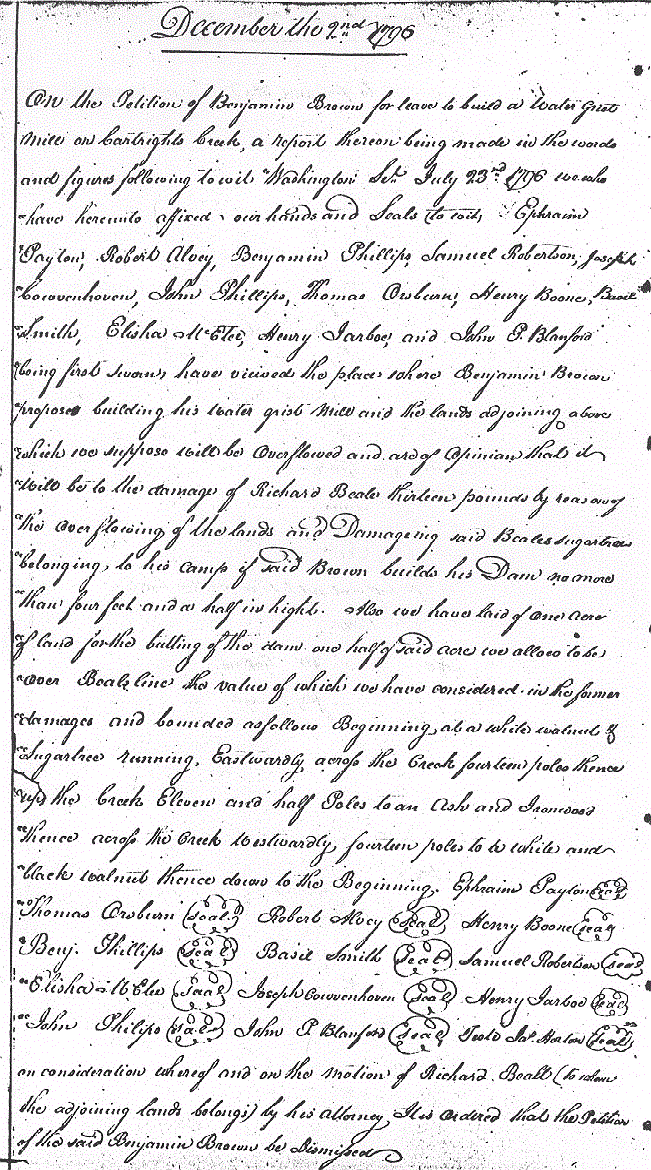 December the 2nd 1796
On the Petition of Benjamin Brown for leave to build a water Grist
Mill on Cartrights Creek, a report thereon being made in the words
and figures following to wit "Washington Sct. July 23rd 1796 we who
"have hereunto affixed our hands and Seals (to wit) Ephraim
"Payton, Robert Alvey, Benjamin Phillips, Samuel Robertson, Joseph
"Cowvenhoven, John Phillips, Thomas Osburn, Henry Boone, Basil
"Smith, Elisha McElee, Henry Jarboe, and John P. Blanford
"being first sworn, have viewed the place where Benjamin Brown
"proposes building his water grist Mill and the lands adjoining above
"which we suppose will be Overflowed and are of Opinion that it
"will be to the damage of Richard Beale thirteen pounds by reason of
"the Overflowing of the lands and Damageing said Beales sugartrees
"belonging to his camp if said Brown builds his Dam no more
"than four feet and a half in hight. Also we have laid of one acre
"of land for the butting of the dam one half of said acre we allow to be
"over Beals line the value of which we have considered in the former
"damages and bounded as follows Beginning at a white walnut &
"Sugartree running Eastwardly across the Creek fourteen poles thence
"up the Creek Eleven and half Poles to an Ash and Ironwood
"thence across the Creek Westwardly fourteen poles to a white and
"black walnut thence down to the Beginning. Ephraim Payton (seal)
"Thomas Osburn (seal) Robert Alvey (seal) Henry Boone (seal)
"Benj. Phillips (seal) Basil Smith (seal) Samuel Robertson (seal)
"Elisha McElee (seal) Joseph Couvenhoven (seal) Henry Jarboe (seal)
"John Philips (seal) John P Blanford (seal) Test Jas. Horton (seal)"
on consideration whereof and on the Motion of Richard Beall (to whom
the adjoining lands belongs) by his Attorney, It is Ordered that the Petition
of the said Benjamin Brown be Dismissed